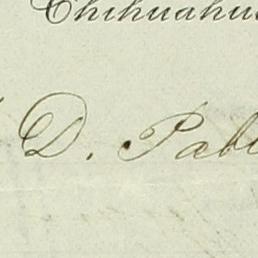 Chihuahua
D. Pab